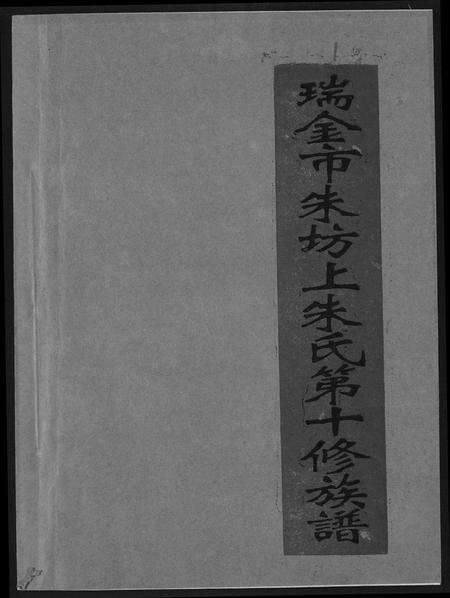 瑞金市朱坊上朱氏第十修族譜